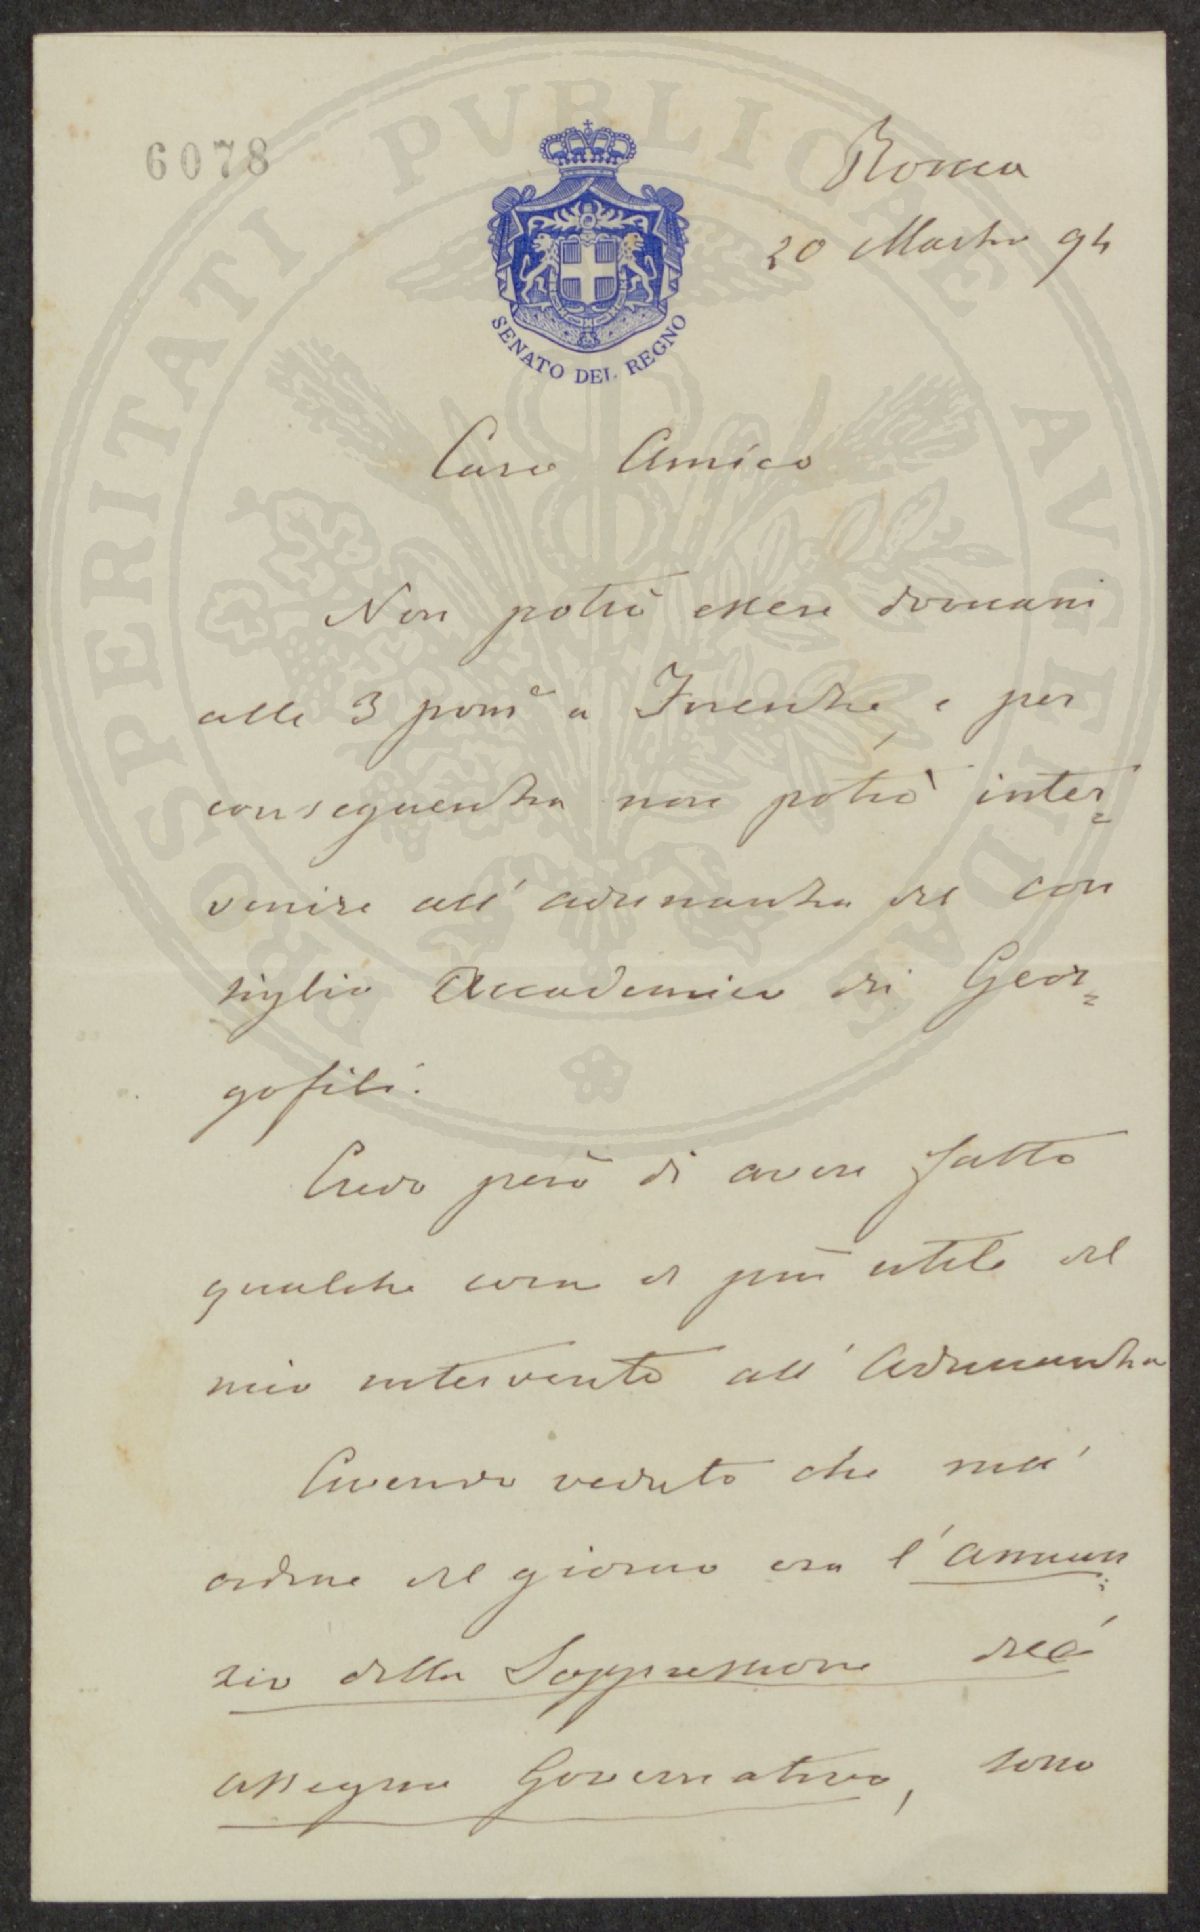 6078
PROSPERITATI PVBLICAE AVGENDAE
SENATO DEL REGNO
Roma
20 Marzo 94
Caro Amico
Non potrò essere domani
alle 3 pom.e a Firenze, e per
conseguenza non potrò inter=
venire all'adunanza del Con
siglio Accademico dei Geor=
gofili.
Credo però di avere fatto
qualche cosa di più utile del
mio intervento all'Adunanza
Avendo veduto che nell'
ordine del giorno era l'annun
zio della Soppressione dell'
assegno Governativo, sono